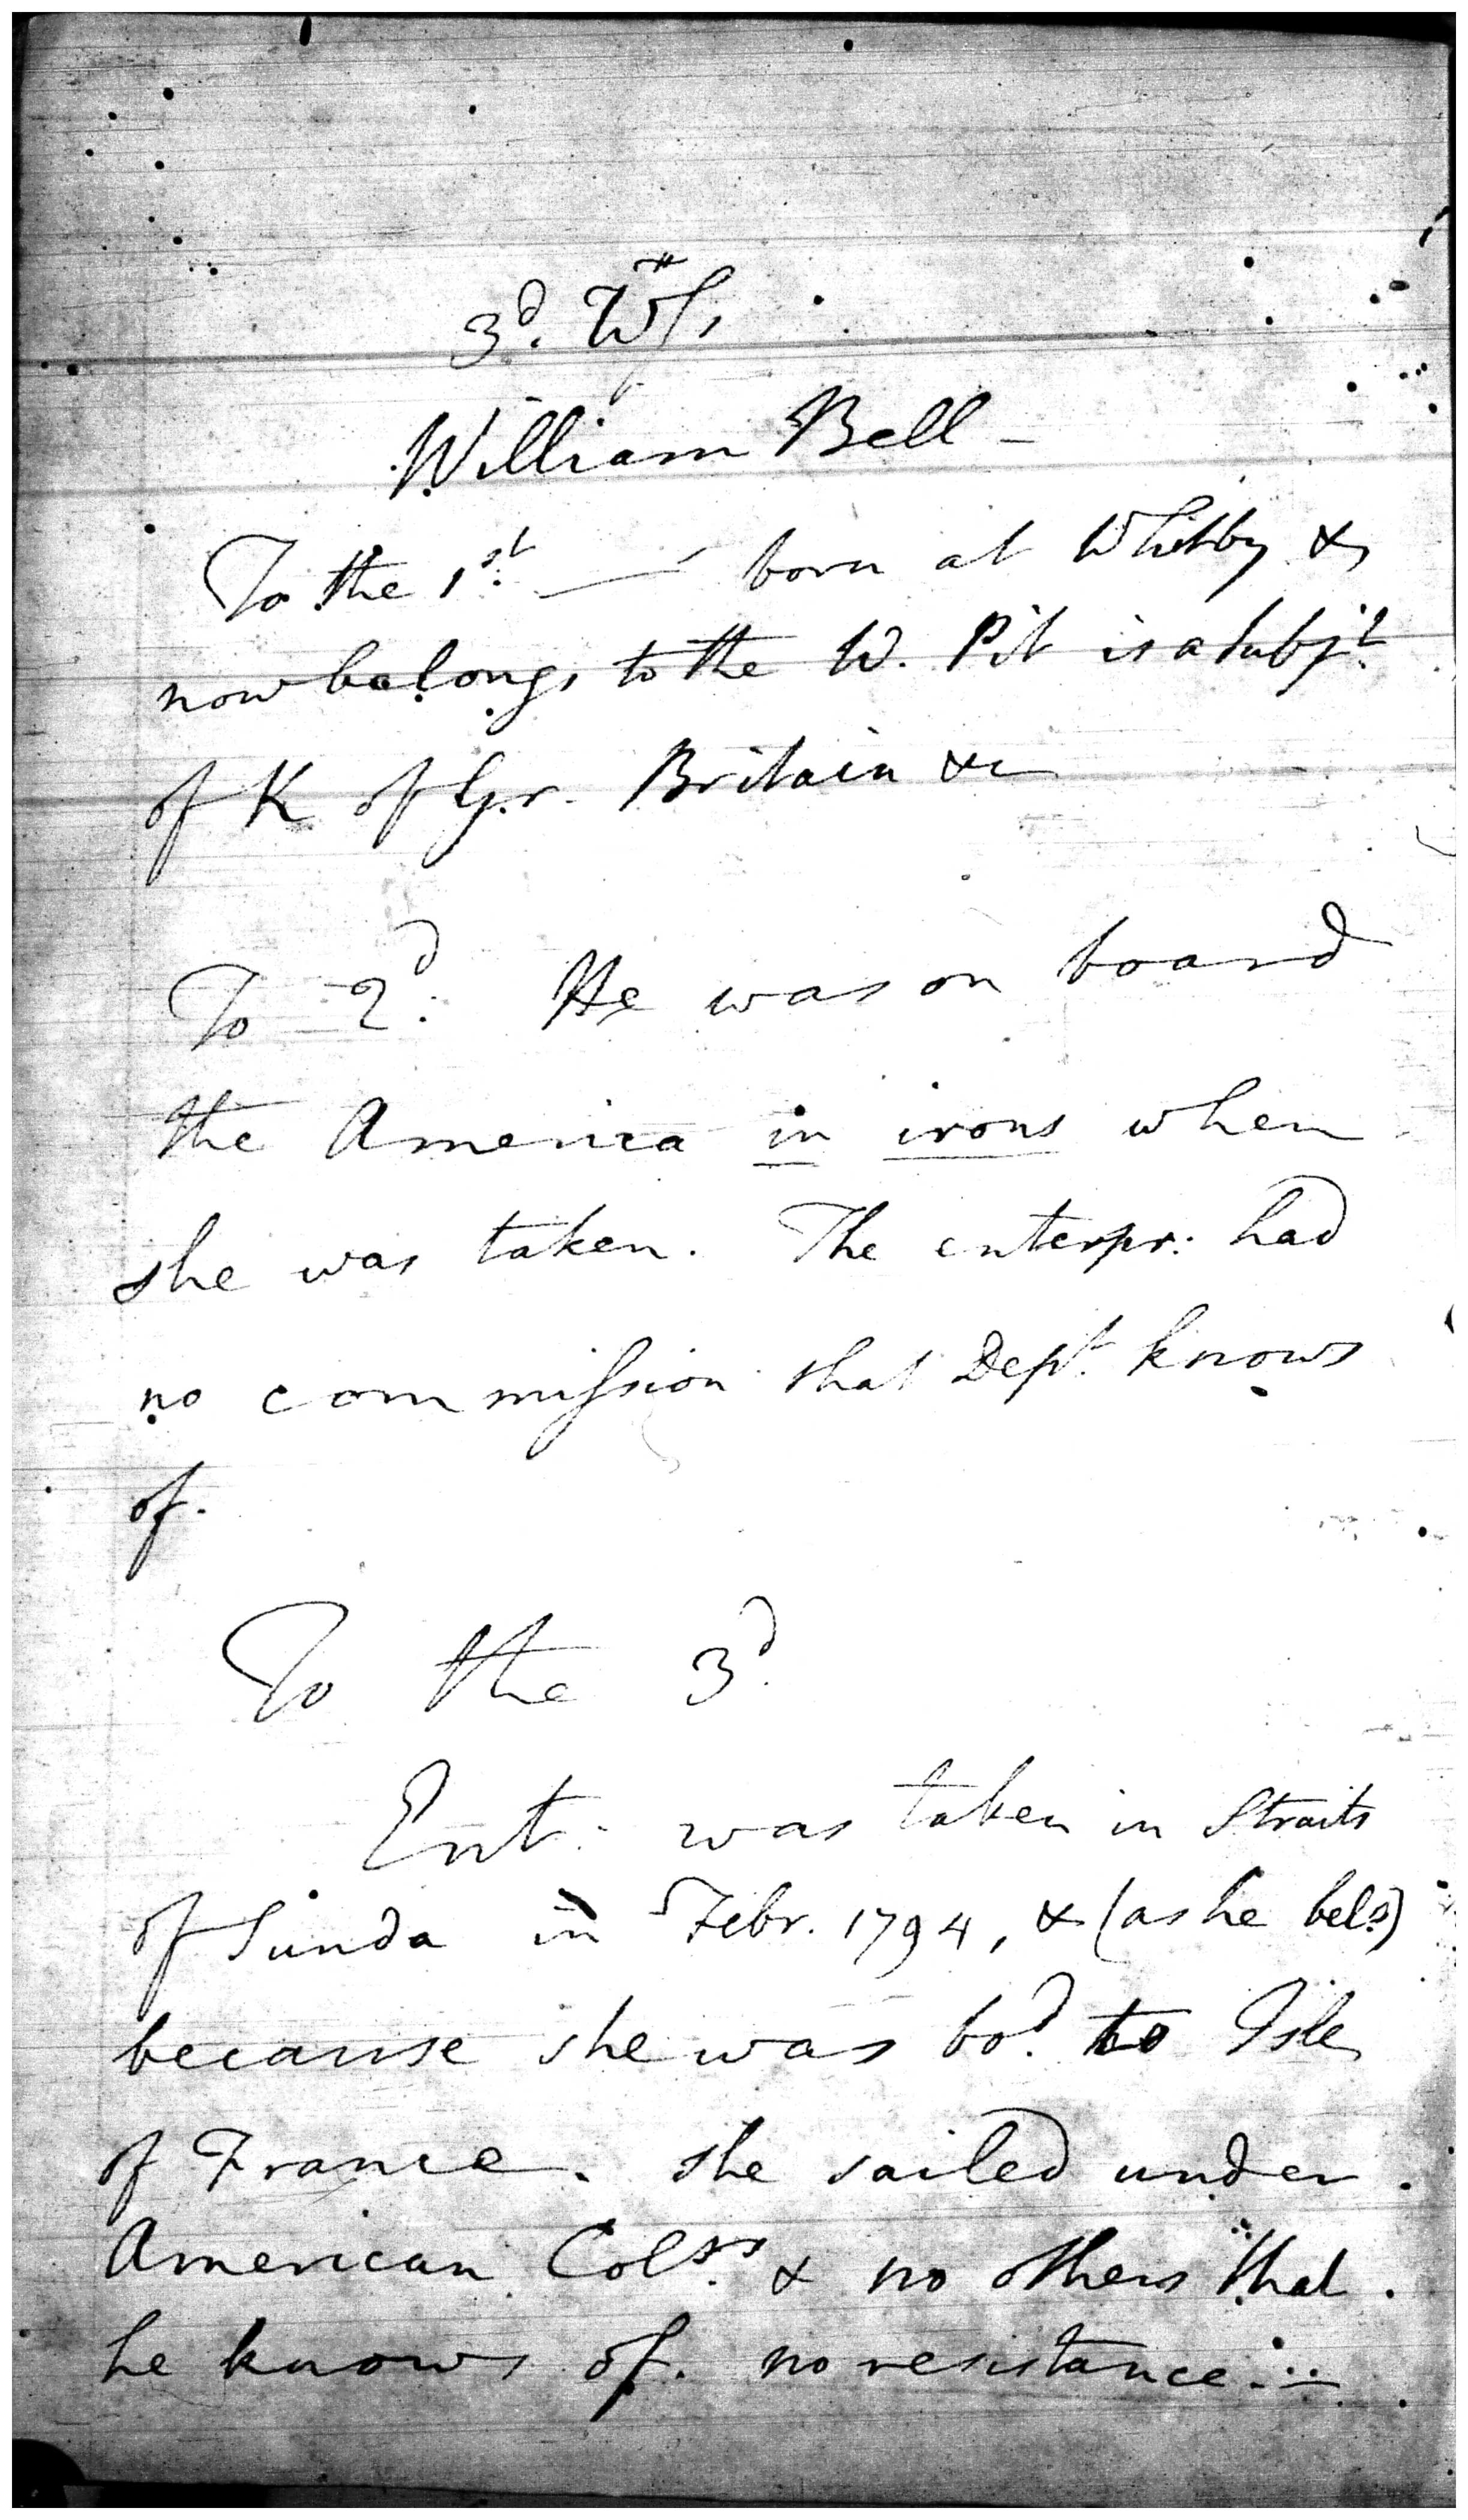 3d. Wss
William Bell -
To the 1st. — born at Whitby &
now belongs to the W. Pit is a subjt.
of K of Gr. Britain &c
To 2d: He was on board
the America in irons when
she was taken. The enterpr: had
no commission that Dept. knows
of.
To the 3d.
Ent: was taken in Straits
of Sunda in Febr. 1794, & (as he bels)
because she was bod. to Isle
of France. she sailed under
American Colrs. & no others that
he knows of. no resistance. —